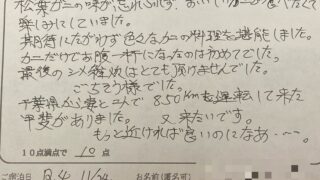 松葉ガニの味が忘れられず、おいしいカニが食べたくて
楽しみにしていました。
期待にたがわず色々なカニの料理を堪能しました。
カニだけでお腹一杯になったのは初めてでした。
最後のシメ雑炊はとても頂けませんでした。
ごちそう様でした。
千葉県から妻と二人で850kmを運転して来た
甲斐がありました。 又来たいです。
もっと近ければ良いのになあ・・・。
10点満点で 10 点
ご宿泊日 R4 11/24 お名前(匿名可)